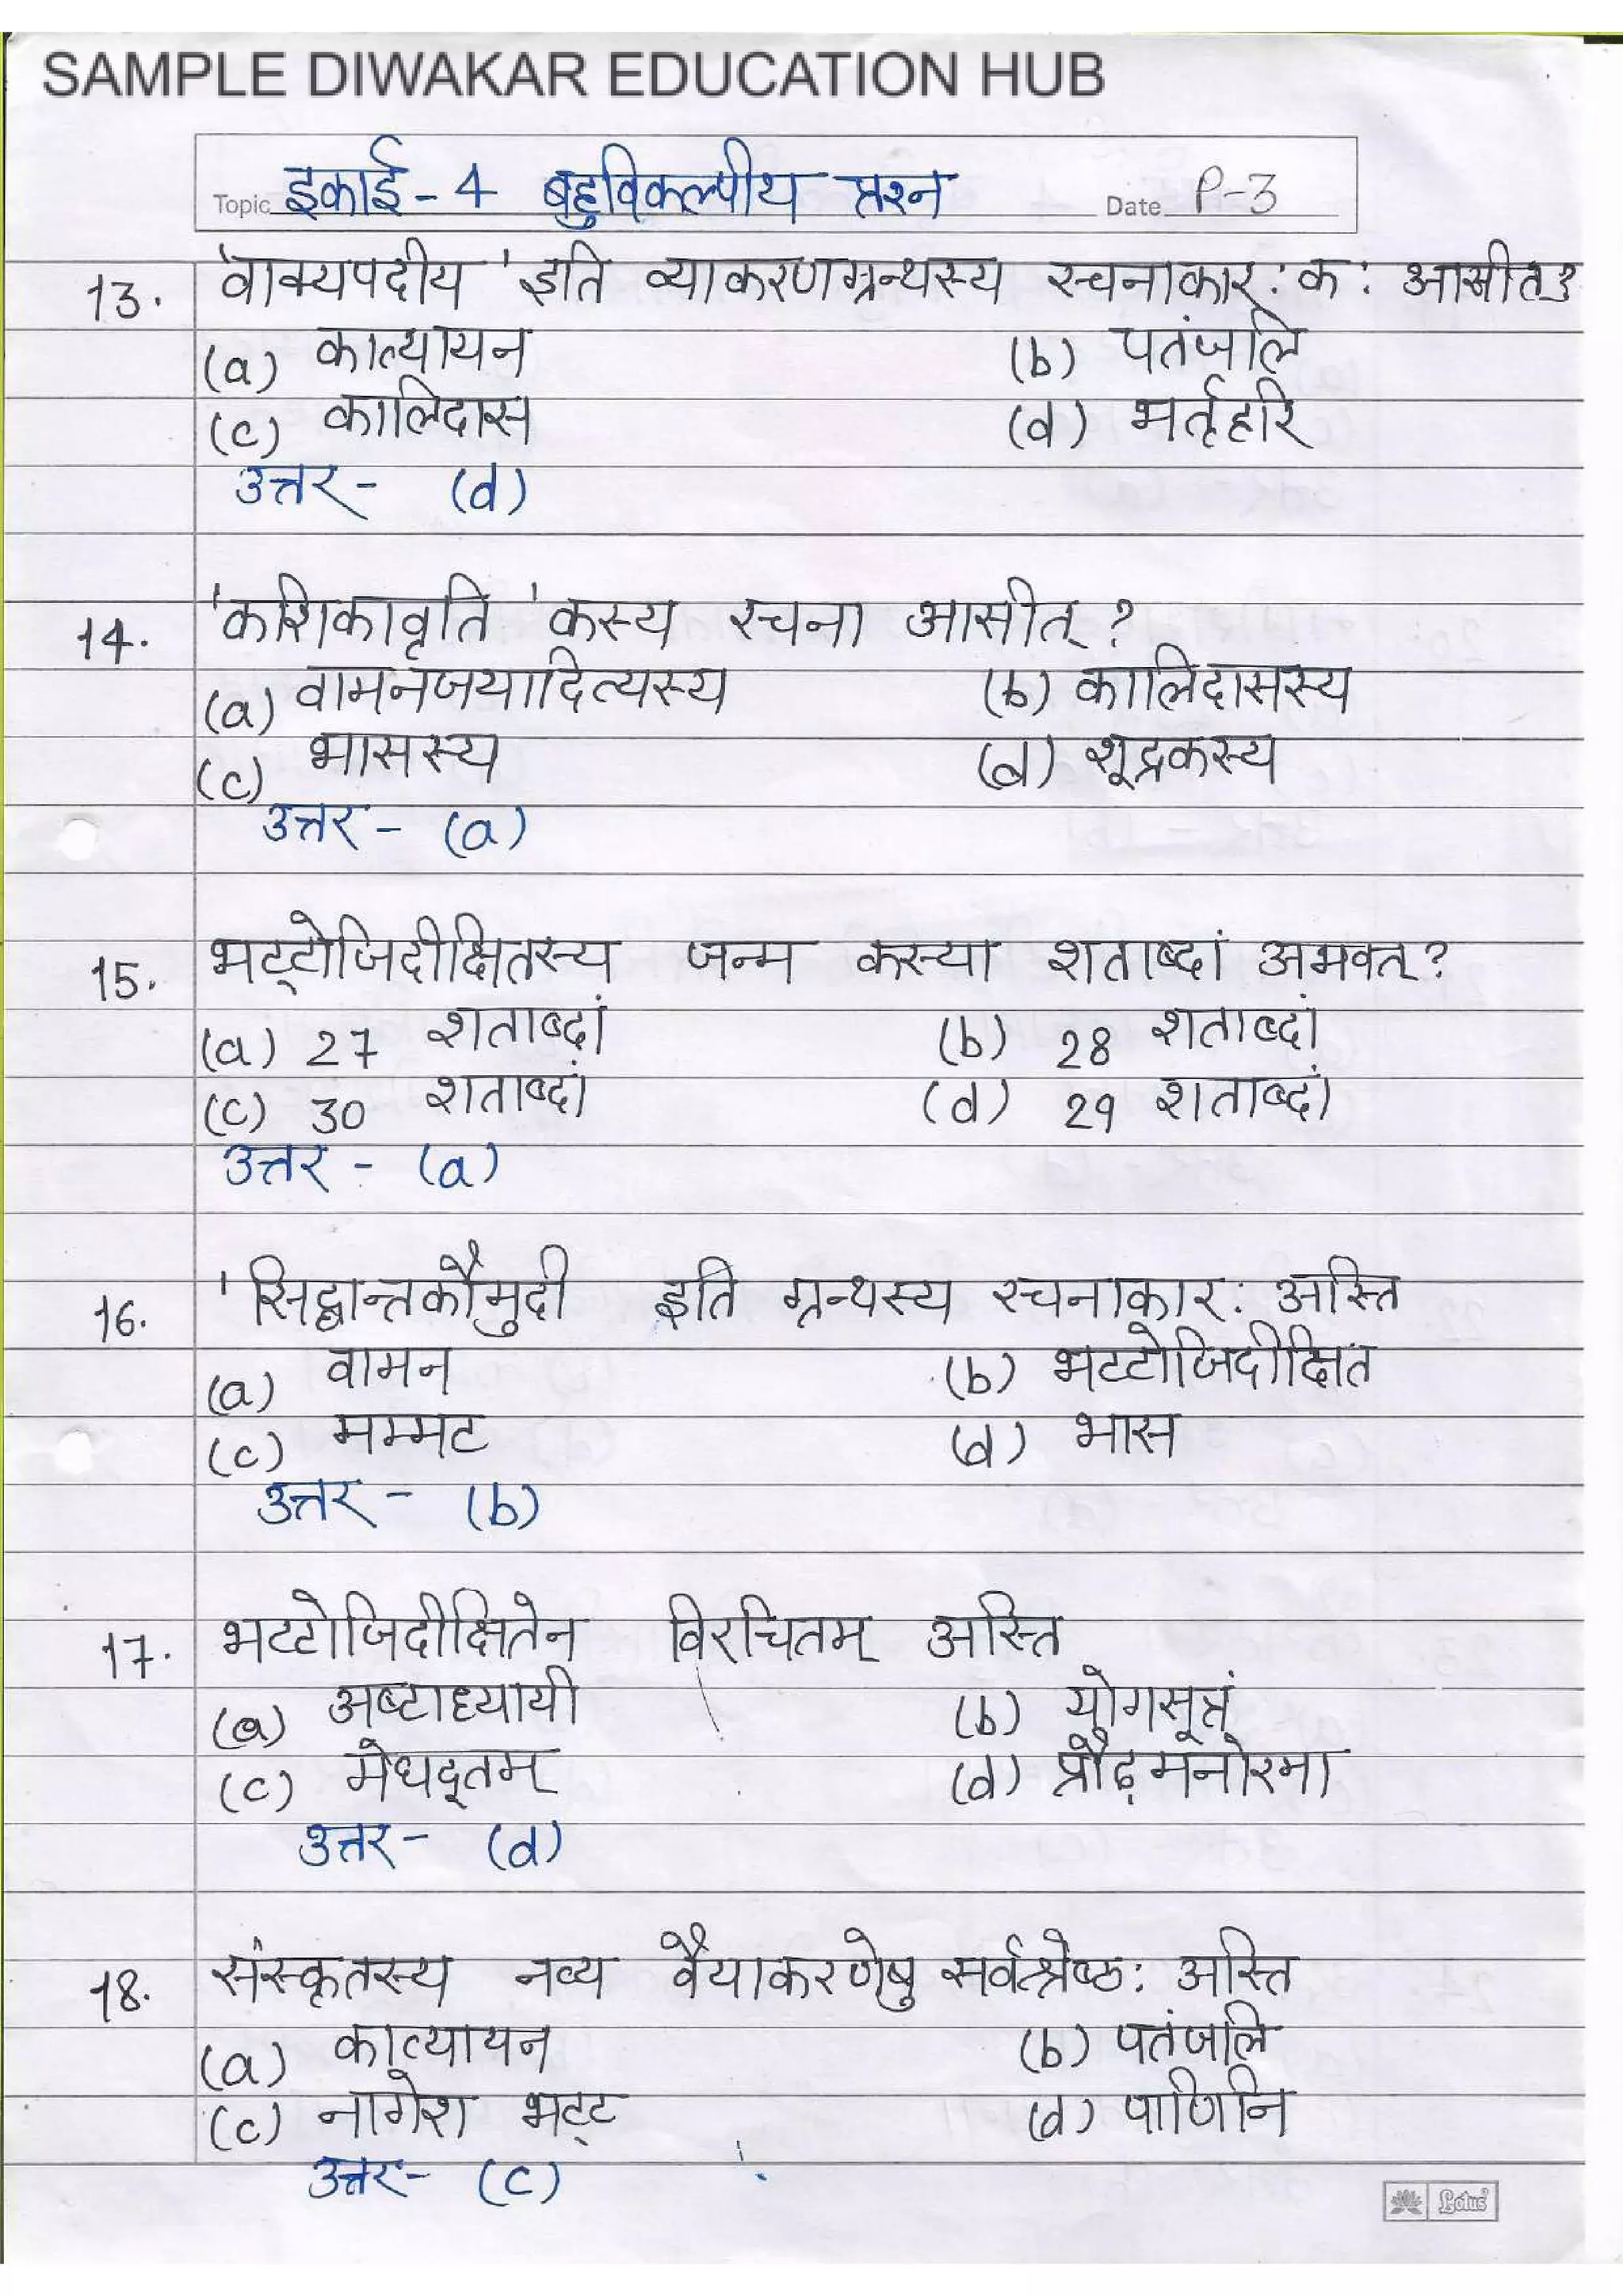 SAMPLE DIWAKAR EDUCATION HUB
Topic इकाई - 4 बहुविकल्पीय प्रश्न Date P-3
13. 'वाक्यपदीय' इति व्याकरणग्रन्थस्य रचनाकार: क: आसीत्?
(a) कात्यायन (b) पतंजलि
(c) कालिदास (d) भर्तृहरि
उत्तर - (d)
14. 'कशिकावृति' कस्य रचना आसीत्?
(a) वामनजयादित्यस्य (b) कालिदासस्य
(c) भासस्य (d) शूद्रकस्य
उत्तर - (a)
15. भट्टोजिदीक्षितस्य जन्म कस्या शताब्दां अभवत्?
(a) 27 शताब्दां (b) 28 शताब्दां
(c) 30 शताब्दां (d) 29 शताब्दां
उत्तर - (a)
16. 'सिद्धान्तकौमुदी इति ग्रन्थस्य रचनाकार: अस्ति
(a) वामन (b) भटटोजिदीक्षित
(c) मम्मट (d) भास
उत्तर - (b)
17. भटटोजिदीक्षितेन विरचितम् अस्ति
(a) अष्टाध्यायी (b) योगसूत्रं
(c) मेधदूतम् (d) प्रौढ़मनोरमा
उत्तर - (d)
18. संस्कृतस्य नव्य वैयाकरणेषु सर्वश्रेष्ठ: अस्ति
(a) कात्यायन (b) पतंजलि
(c) नागेश भट्ट (d) पाणिनि
उत्तर - (c)
Lotus